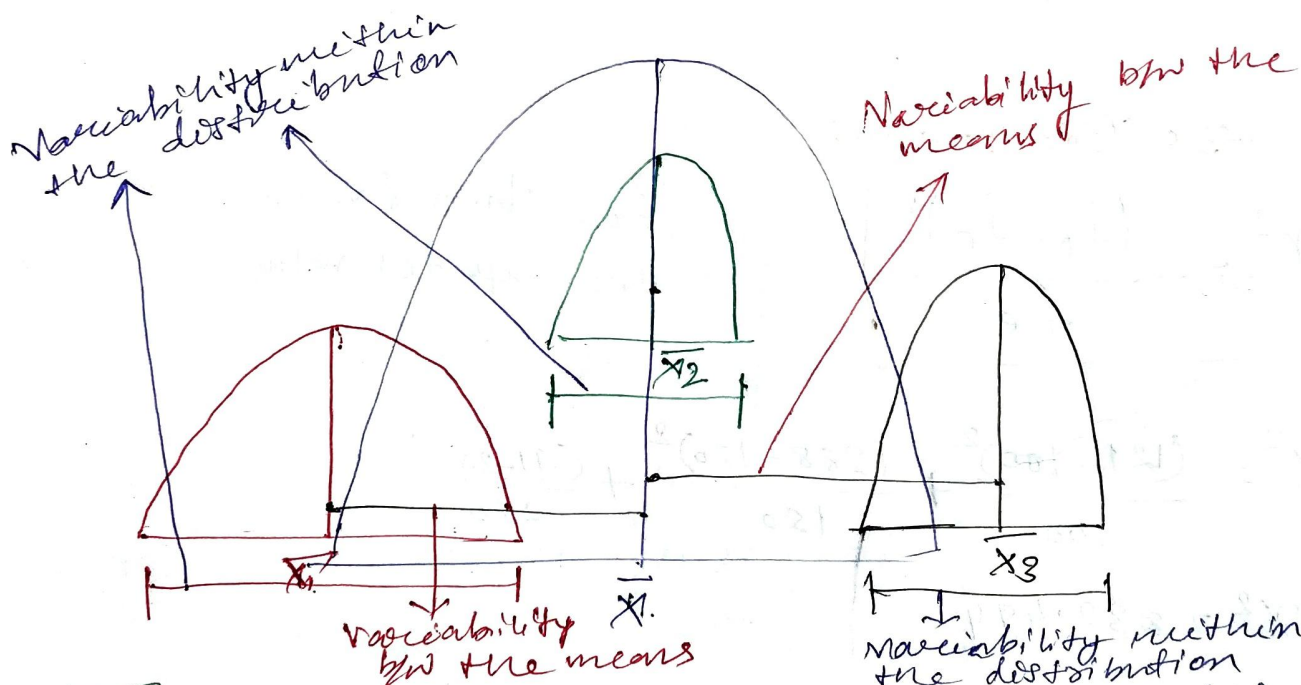 Variability within
the distribution
Variability b/w the
means
X̄2
X̄1
X̄.
X̄3
variability
b/w the means
variability within
the distribution